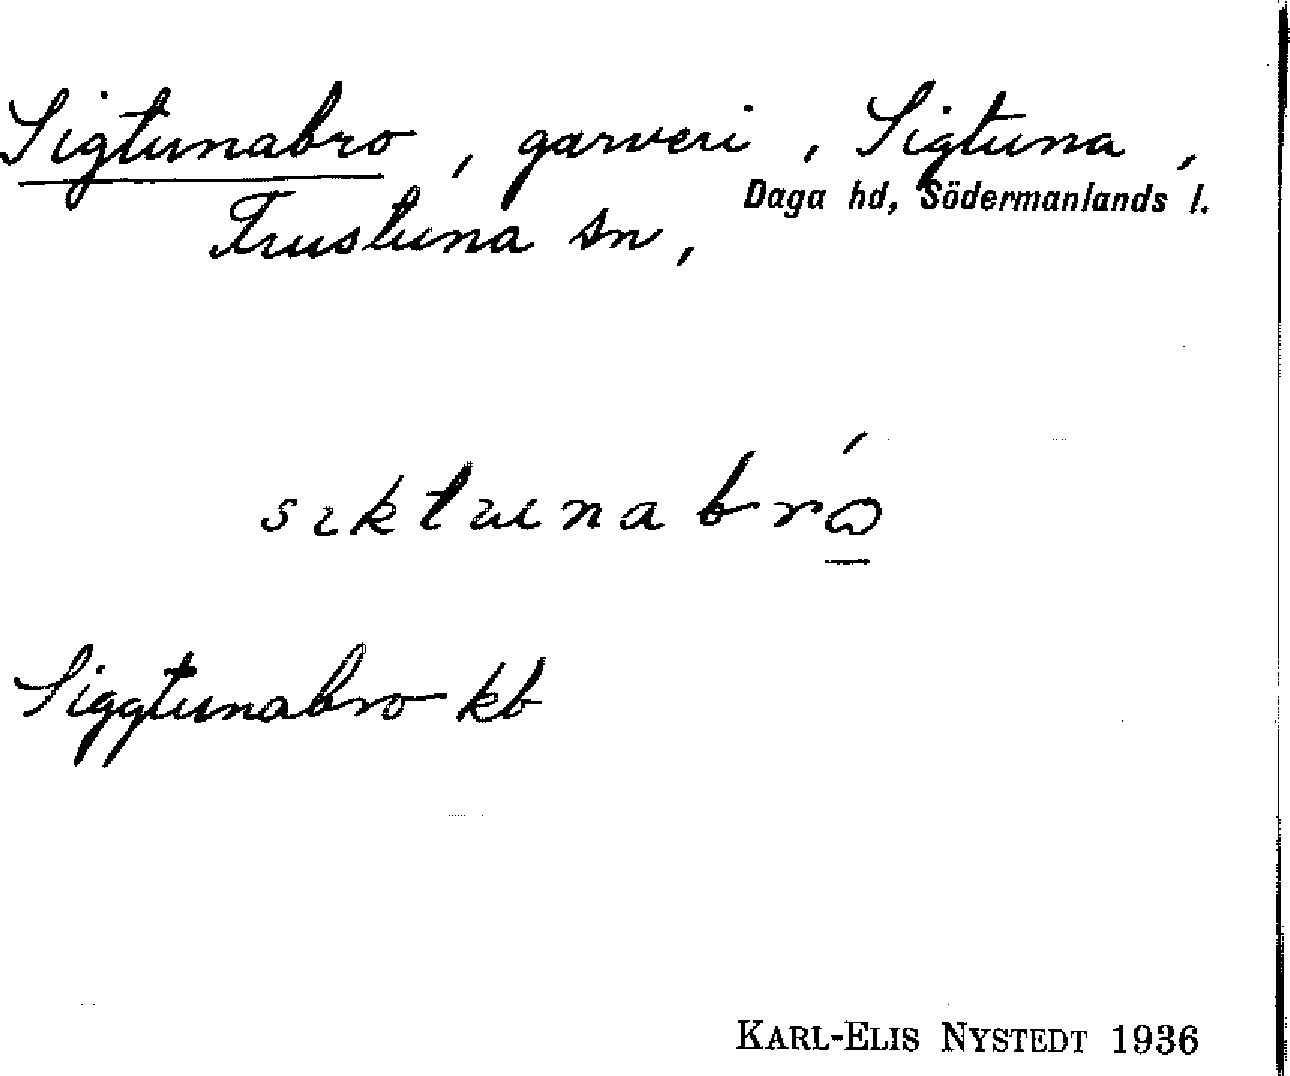 Sigtunabro, garveri, Sigtuna,
Frustuna sn, Daga hd, Södermanlands l.
Siggtunabro kb
KARL-ELIS NYSTEDT 1936